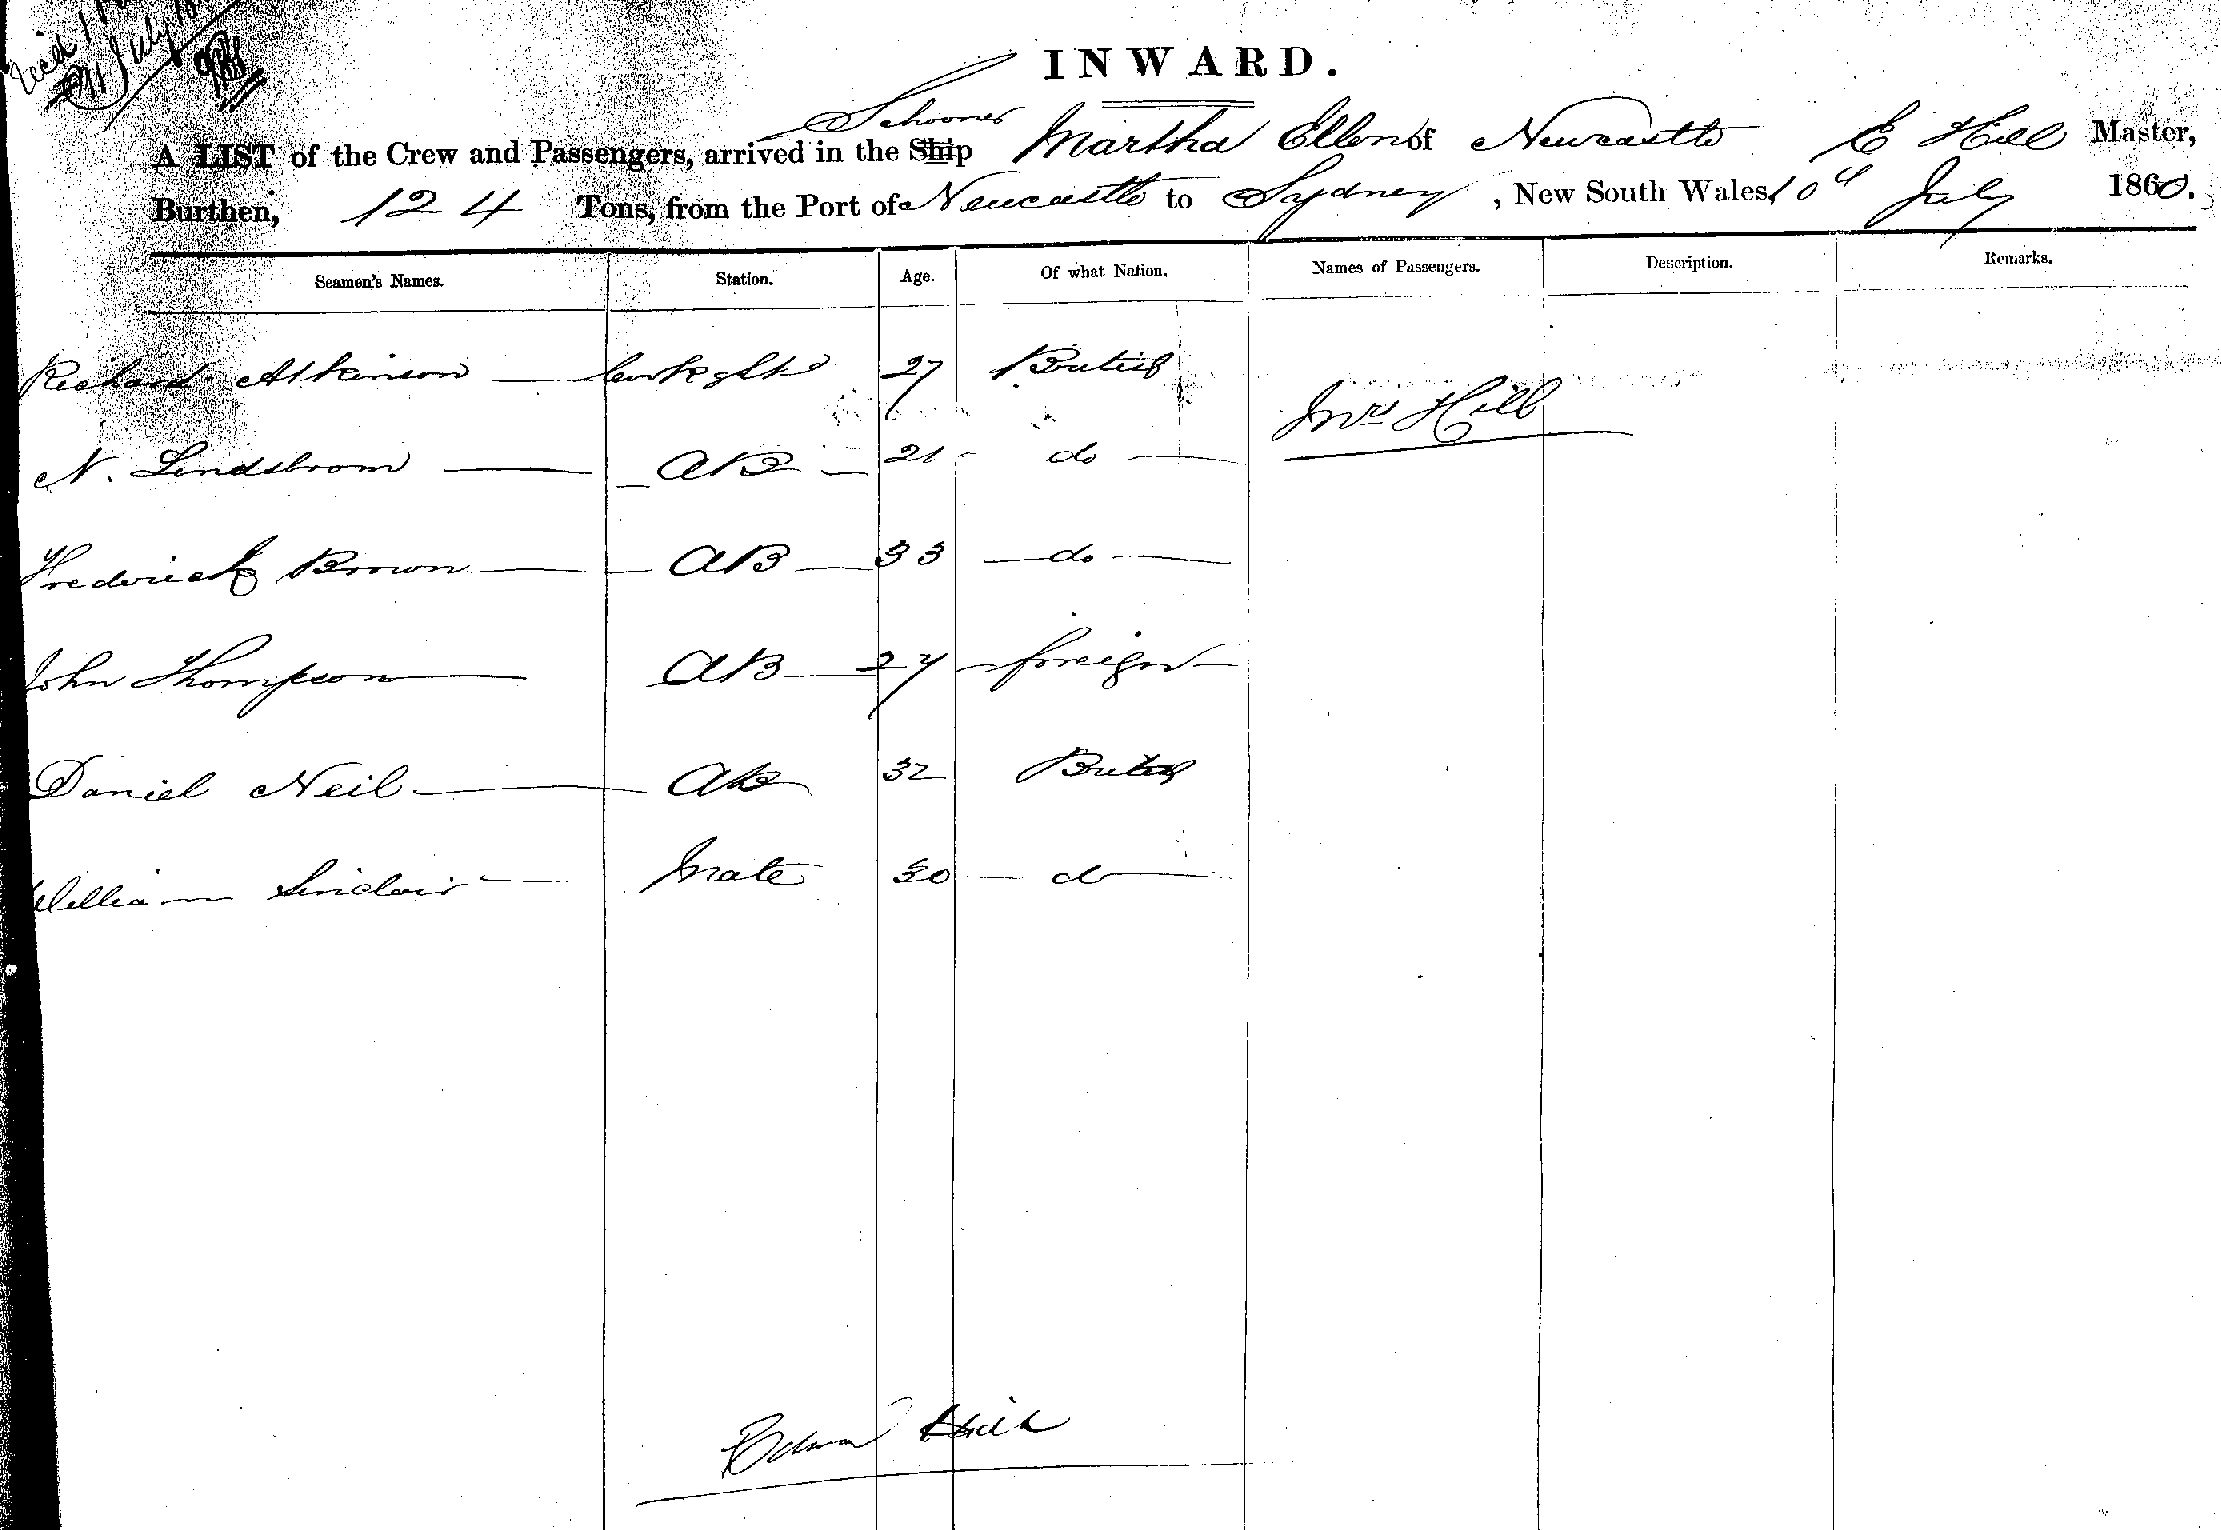 Recd
July
INWARD.
Schooner
A LIST of the Crew and Passengers, arrived in the Ship Martha Ellen of Newcastle E Hill Master,
Burthen, 124 Tons, from the Port of Newcastle to Sydney, New South Wales, 10th July 1860.
Seamen's Names. Station. Age. Of what Nation. Names of Passengers. Description. Remarks.
Richard Atkinson 27 British
Mrs Hill
N. Lindstrom AB 21 do
Frederick Brown AB 33 do
John Thompson AB 27 foreign
Daniel Neil AB 32 British
William Sinclair Mate 30 do
Hill